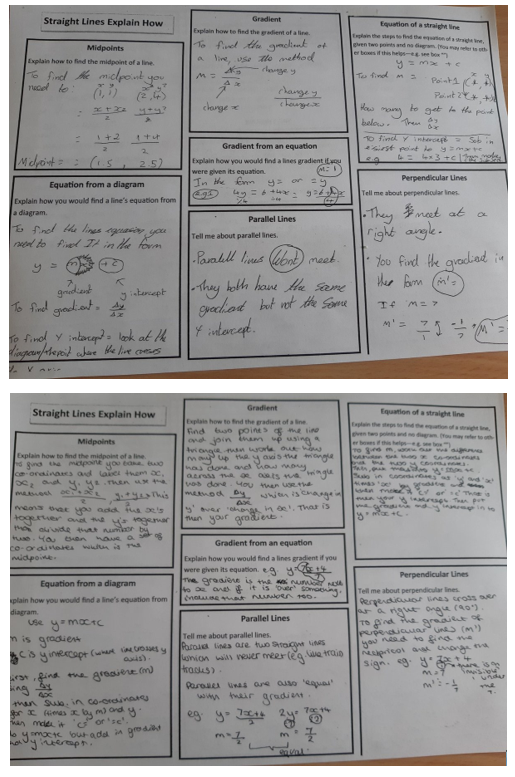 Straight Lines Explain How
Midpoints
Explain how to find the midpoint of a line.
To find the midpoint you
need to:
(1,1) (2,4)
: x+x2 y+y2
2 2
: 1+2 1+4
2 2
Midpoint = : (1.5, 2.5)
Equation from a diagram
Explain how you would find a line's equation from
a diagram.
To find the lines equation you
need to find it in the form
y = mx + c
gradient y intercept
To find gradient = Δy
Δx
To find Y intercept = look at the
where the line crosses
Gradient
Explain how to find the gradient of a line.
To find the gradient of
a line, use the method
M = Δy change y
Δx
change x
change y
change x
Gradient from an equation
Explain how you would find a lines gradient if you
were given its equation.
In the form y = or = y
Parallel Lines
Tell me about parallel lines.
• Parallel lines Wont meet.
• They both have the same
gradient but not the same
Y intercept.
Equation of a straight line
Explain the steps to find the equation of a straight line,
given two points and no diagram. (You may refer to oth-
er boxes if this helps—e.g. see box *)
y = mx + c
To find m = Point 1
Point 2
How many to get to the point
below. Then Δy
Δx
To find Y intercept = Sub in
a first point to y = mx + c
Perpendicular Lines
Tell me about perpendicular lines.
• They meet at a
right angle.
• You find the gradient in
the form m'=
If m = 7
m' = 7 -1
1 7
Straight Lines Explain How
Midpoints
Explain how to find the midpoint of a line.
To find the midpoint you take two
co-ordinates and label them x,
x2 and y, y2. Then use the
method x1+x2 y1+y2 This
2
means that you add the x's
together and the y's together
then divide that number by
two. You then have a set of
co-ordinates which is the
midpoint.
Equation from a diagram
Explain how you would find a line's equation from
diagram.
use y = mx + c
m is gradient
C is y intercept (when line crosses y
axis).
First, find the gradient (m)
using Δy
Δx
Then sub in co-ordinates
for x (times x by m) and y.
Then make it 'c=' or '=c'.
y = mx + c but add in gradient
and y intercept.
Gradient
Explain how to find the gradient of a line.
Find two points of the line
and join them up using a
triangle then work out how
many up the y axis the triangle
has gone and how many
across the x axis the triangle
has gone. You then use the
method Δy which is 'change in
Δx
y' over 'change in x'. That is
then your gradient.
Gradient from an equation
Explain how you would find a lines gradient if you
were given its equation. e.g. y = 7x+4
2
The gradient is the number next
to x and if it is over something,
include that number too.
Parallel Lines
Tell me about parallel lines.
Parallel lines are two straight lines
which will never meet (e.g. like train
tracks).
Parallel lines are also 'equal'
with their gradient.
eg. y = 7x+4 2y = 7x+4
2
m = 7 m = 7
2 2
equal.
Equation of a straight line
Explain the steps to find the equation of a straight line,
given two points and no diagram. (You may refer to oth-
er boxes if this helps—e.g. see box *)
y = mx + c.
Perpendicular Lines
Tell me about perpendicular lines.
Perpendicular lines cross over
at a right angle (90°).
To find the gradient of
perpendicular lines (m')
you need to find the
reciprocal and change the
sign. eg. y = 7x + 4
m = 7
m' = -1
7